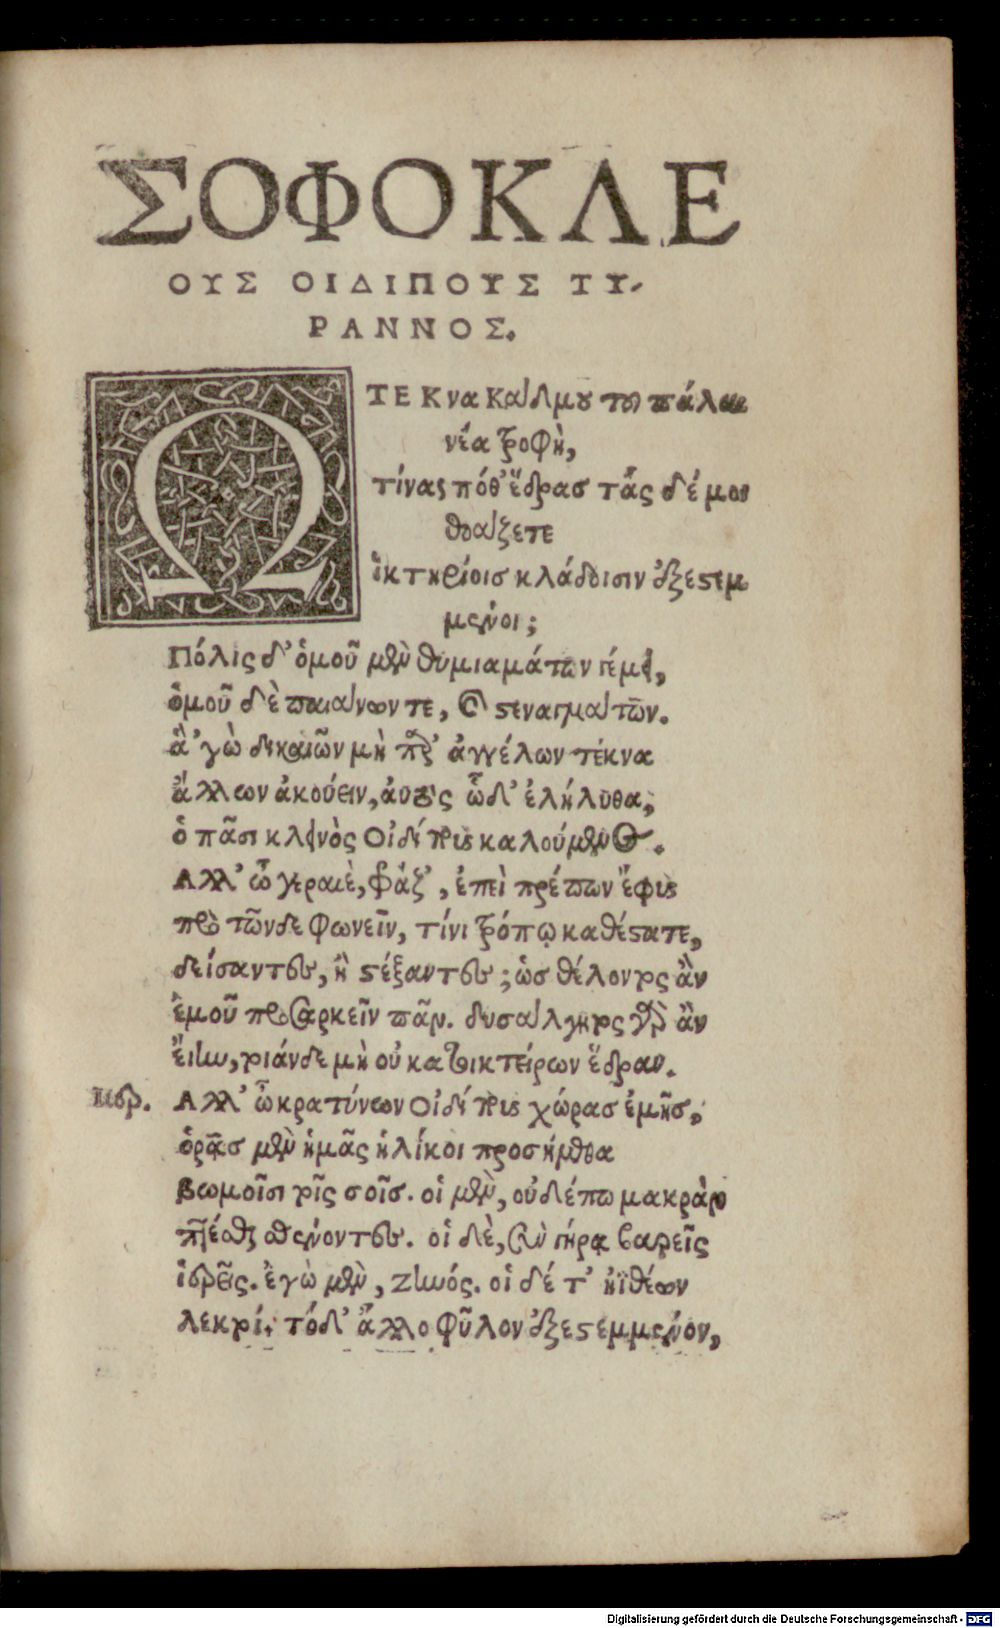 ΣΟΦΟΚΛΕ
ΟΥΣ ΟΙΔΙΠΟΥΣ ΤΥ-
ΡΑΝΝΟΣ.
Ω ΤΕΚνα Κάδμου τοῦ πάλαι
νέα τροφὴ,
τίνας πόθ' ἕδρας τάς δέ μοι
θοάζετε
ἱκτηρίοισ κλάδοισιν ἐξεστεμ
μένοι;
Πόλις δ' ὁμοῦ μὲν θυμιαμάτων γέμει,
ὁμοῦ δὲ παιάνων τε, καὶ στεναγμάτων.
ἃ 'γὼ δικαιῶν μὴ παρ' ἀγγέλων τέκνα
ἄλλων ἀκούειν, αὐτὸς ὧδ' ἐλήλυθα,
ὁ πᾶσι κλεινὸς Οἰδίπους καλούμενος.
Αλλ' ὦ γεραιὲ, φράζ', ἐπεὶ πρέπων ἔφυς
πρὸ τῶνδε φωνεῖν, τίνι τρόπῳ καθέστατε,
δείσαντες, ἢ στέξαντες; ὡσ θέλοντος ἂν
ἐμοῦ προσαρκεῖν πᾶν. δυσάλγητος γὰρ ἂν
εἴην, τοιάνδε μὴ οὐ κατοικτείρων ἕδραν.
Ιερ. Αλλ' ὦ κρατύνων Οἰδίπους χώρασ ἐμῆσ,
ὁρᾷσ μὲν ἡμᾶς ἡλίκοι προσήμεθα
βωμοῖσι τοῖς σοῖσ. οἱ μὲν, οὐδέπω μακρὰν
πτέσθαι σθένοντες. οἱ δὲ, σὺν γήρᾳ βαρεῖς
ἱερεῖς. ἐγὼ μὲν, ζηνός. οἱ δέ τ' ἠϊθέων
λεκτοί. τόδ' ἄλλο φῦλον ἐξεστεμμένον,
Digitalisierung gefördert durch die Deutsche Forschungsgemeinschaft - DFG